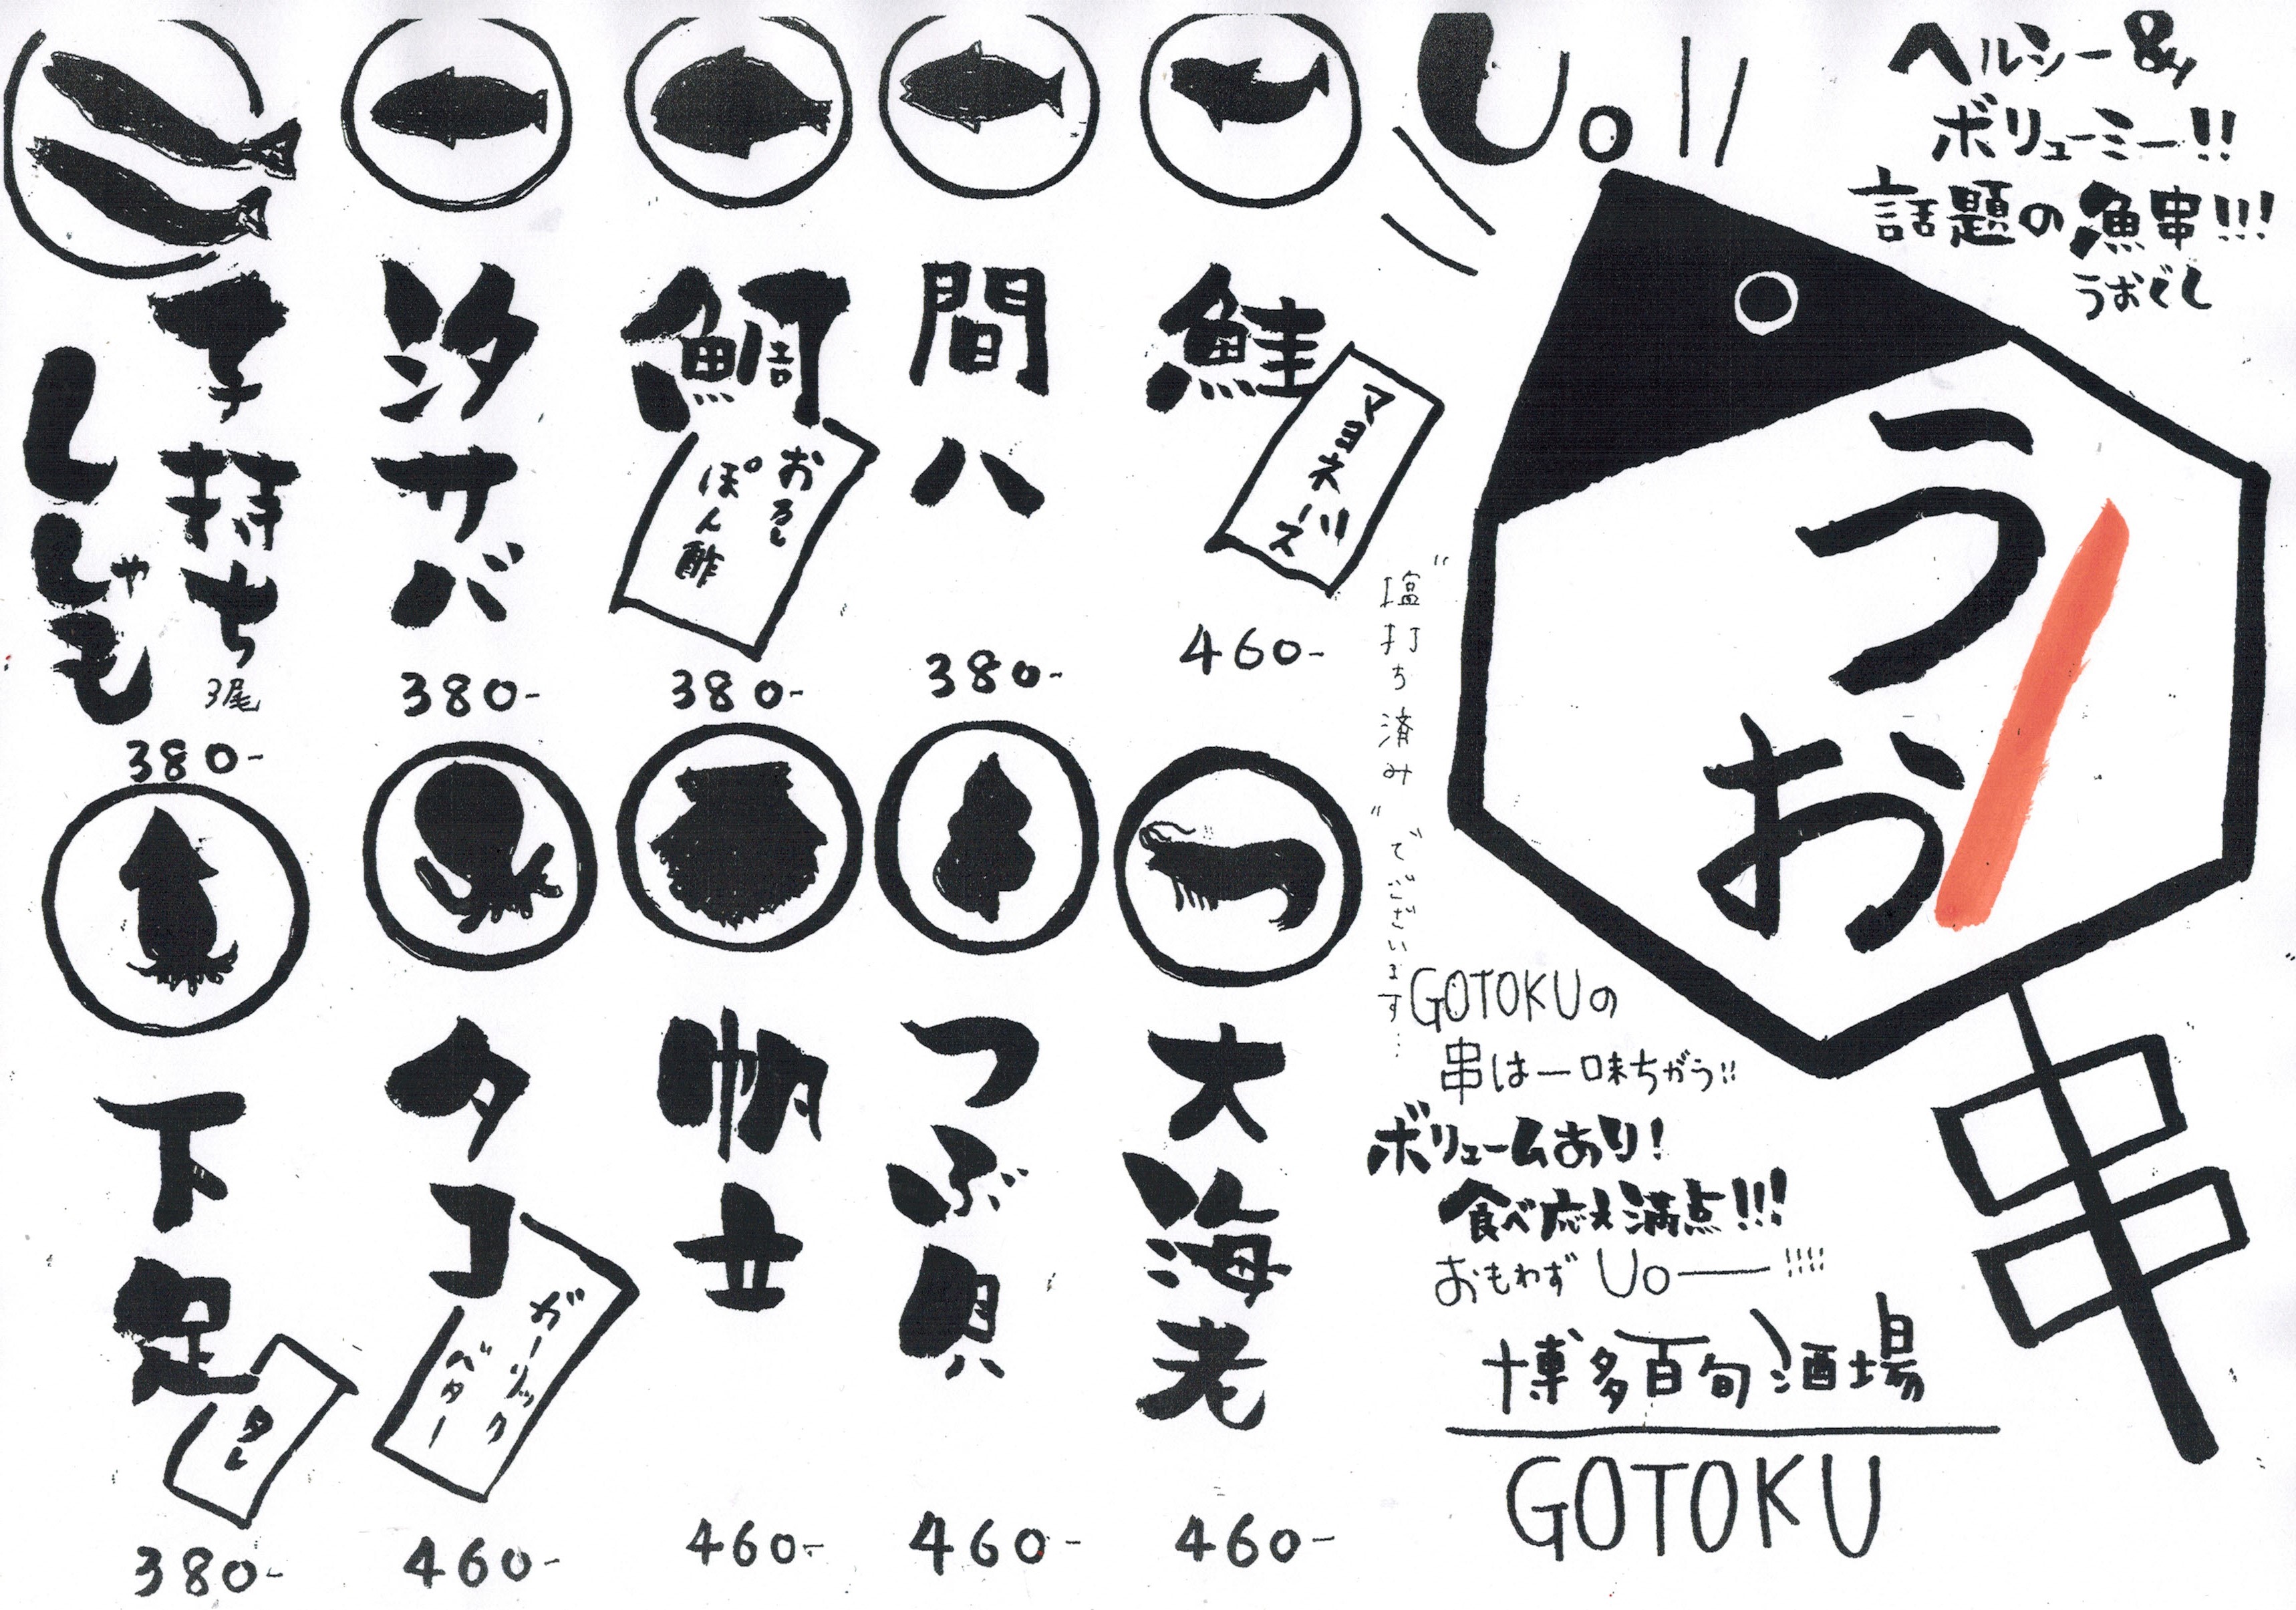 Uo!!
ヘルシー&
ボリューミー!!
話題の魚串!!!
うおぐし
うお
串
鮭
マヨネーズ
460-
間八
380-
鯛
おろし
ぽん酢
380-
汐サバ
380-
子持ち
ししゃも
3尾
380-
大海老
460-
つぶ貝
460-
帆立
460-
タコ
ガーリック
バター
460-
下足
タレ
380-
"塩打ち済み"でございます…
GOTOKUの
串は一味ちがう!!
ボリュームあり!
食べ応え満点!!!
おもわずUo――!!!!
博多百旬酒場
GOTOKU